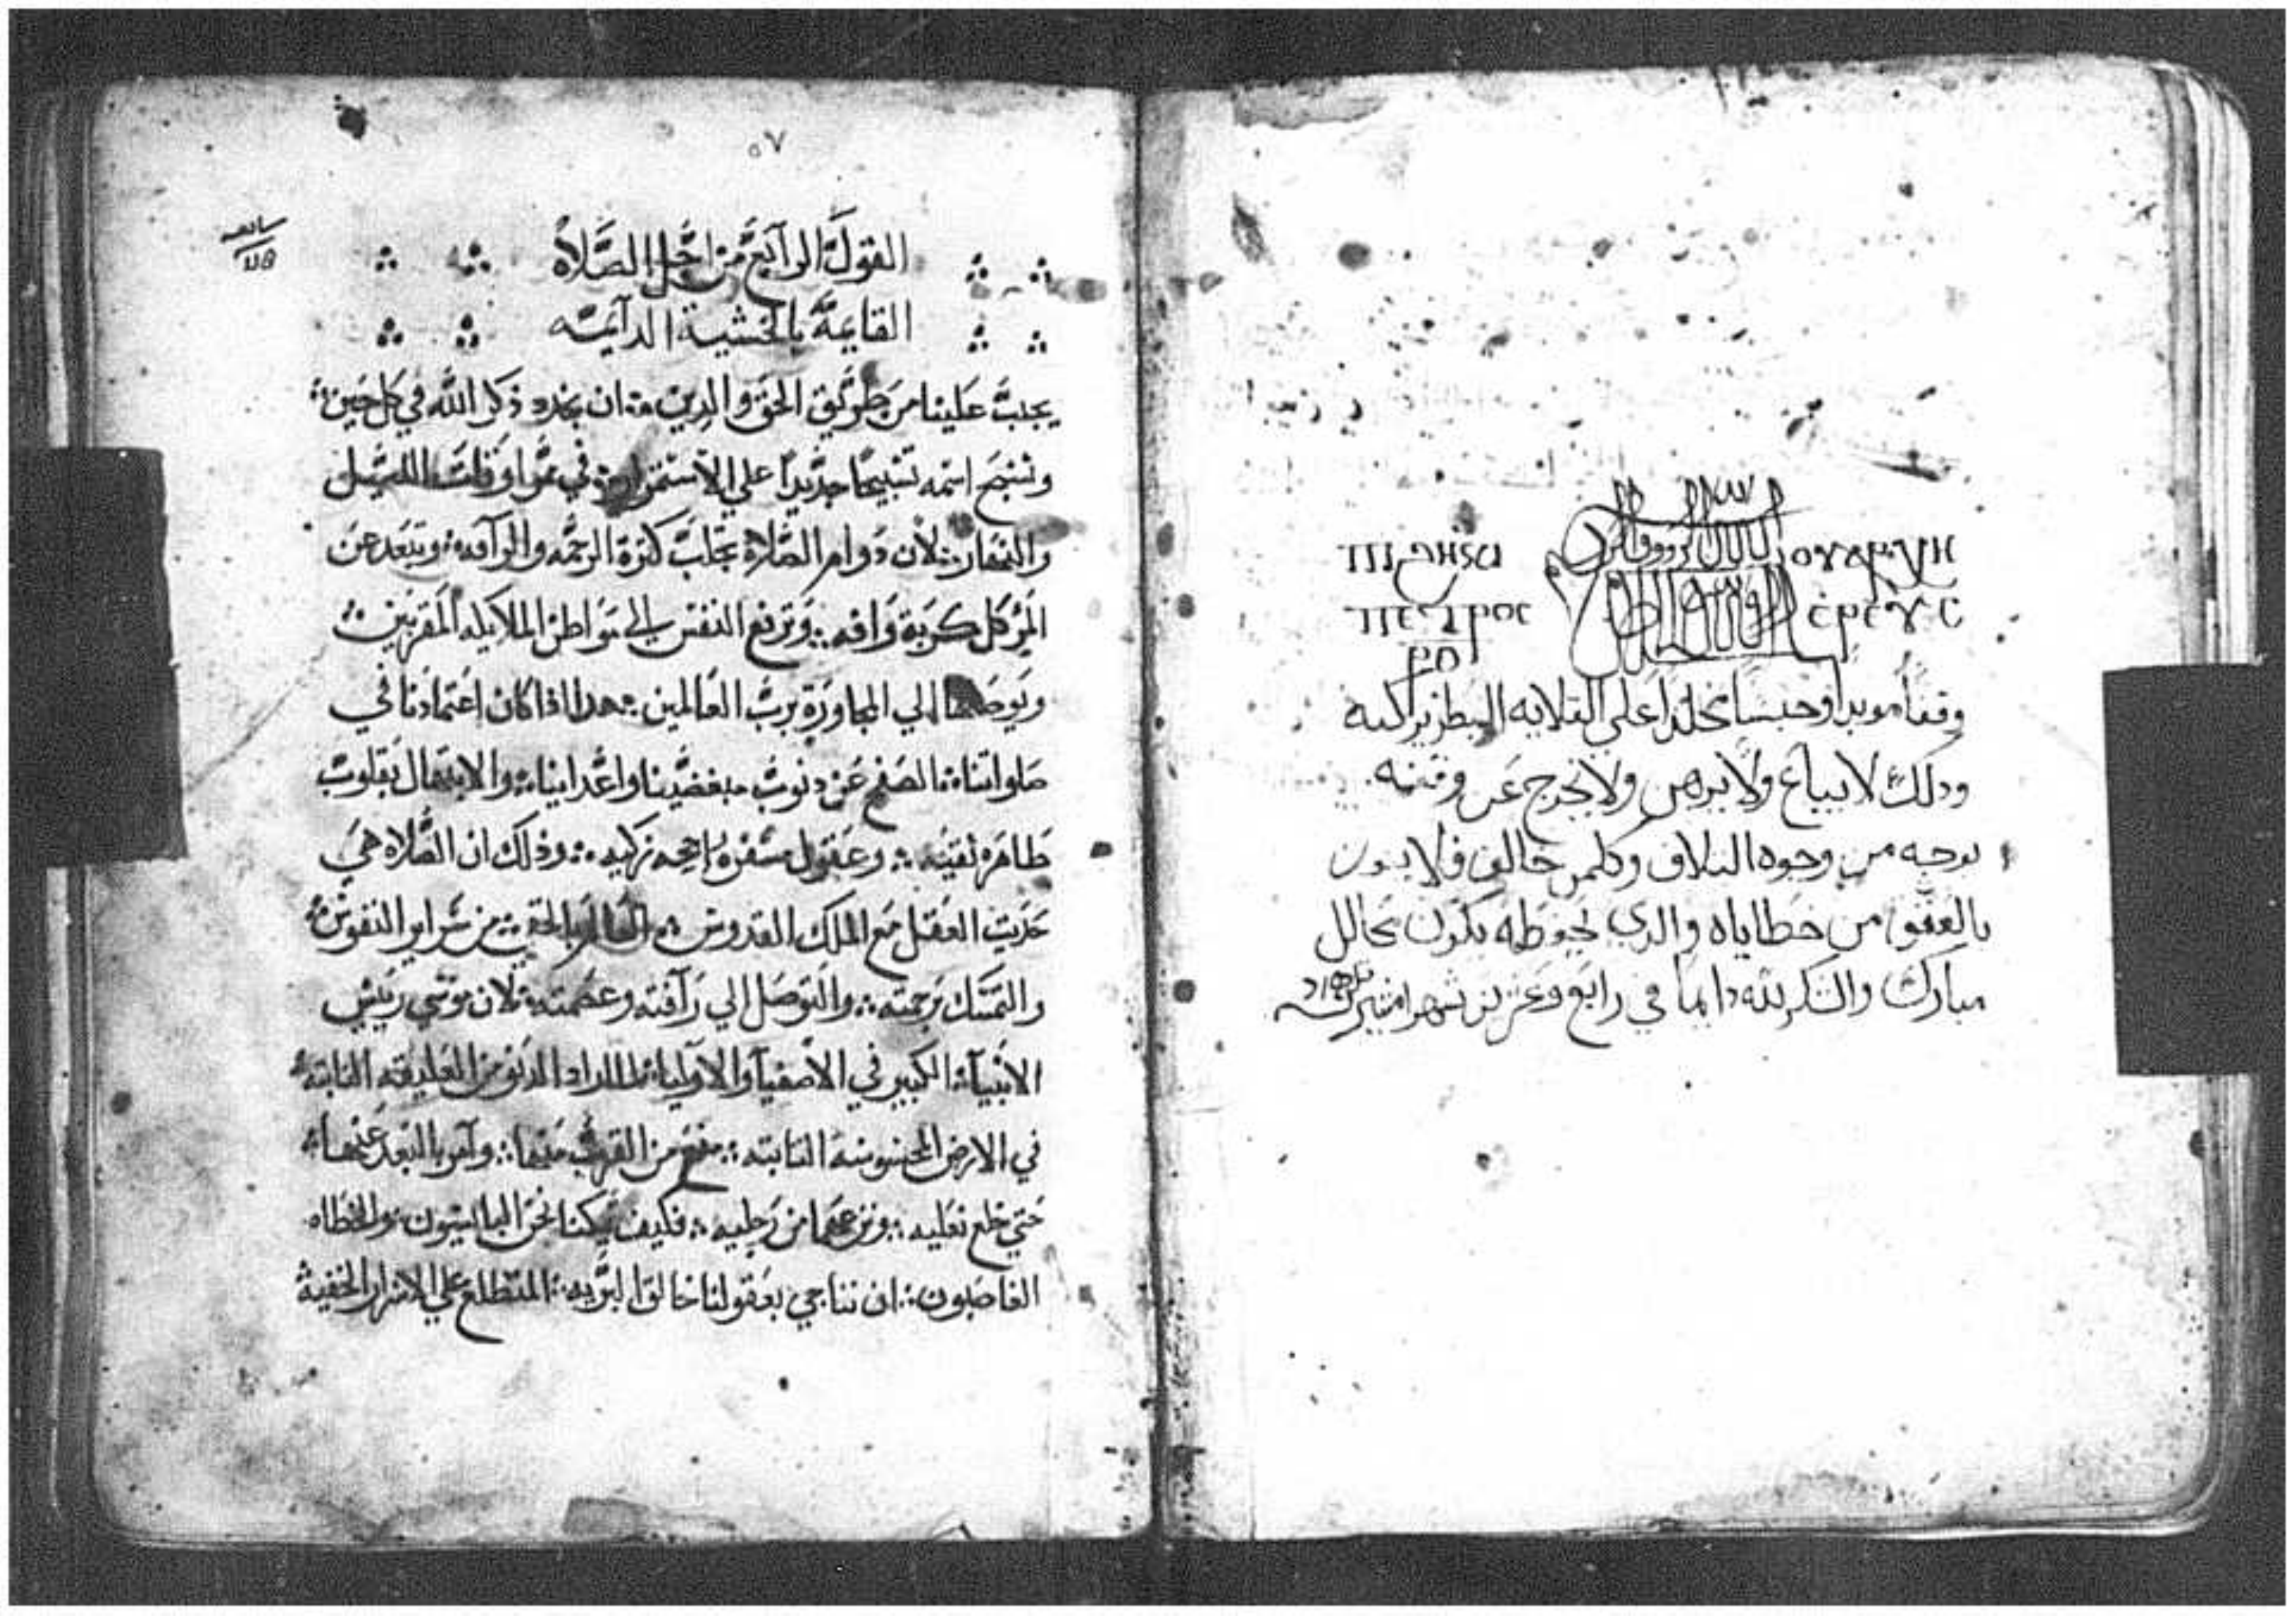 ⲟⲩⲁⲣⲭⲏ
ⲡⲓϧⲏⲕⲓ
ⲡⲉⲧⲣⲟⲥ
ⲣⲑ
وقفاً موبداً وحبساً مخلداً على القلايه البطريركيه
وذلك لا يباع ولا يرهن ولا يخرج عن وقفيته
بوجه من وجوه التلاف وكلمن خالف فلا يكون
بالعفو من خطاياه والذي يحفظه يكون محالل
مبارك والشكر لله دايما في رابع وعشرين شهر امشير
٥٧
القول الرابع من اجل الصلاة
القايمة بالخشية الدايمه
يجب علينا من طريق الحق والدين ان نجدد ذكر الله في كل حين
ونسبح اسمه تسبيحًا جديدًا على الاستمرار في اوقات الليل
والنهار لان دوام الصلاة تجلب كثرة الرحمه والرآفه وتبعد عن
المر كل كربة وافه وترفع النفس الي مواطن الملايكه المقربين
ويوصلها الي المجاورة برب العالمين هدا اذا كان اعتمادنا في
صلواتنا الصفح عن دنوب مبغضينا واعداينا والابتهال بقلوب
طاهره نقيه وعقول زكيه وذلك ان الصلاه هي
حديث العقل مع الملك القدوس من سراير النفوس
والتمسك برحمته والتوصل الي رآفته وعصمته لان موسي رييس
الانبيآ الكبير في الاصفيآ والاوليا لما اراد الدنو من العليقه الثابته
في الارض المحسوسة النابته منع من القرب منها وآمر بالبعد عنها
حتي خلع نعليه ونزعهما من رجليه فكيف يمكنا نحن الباليسون والخطاه
الغاصبون ان نناجي بعقولنا خالق البريه المتطلع علي الاسرار الخفية